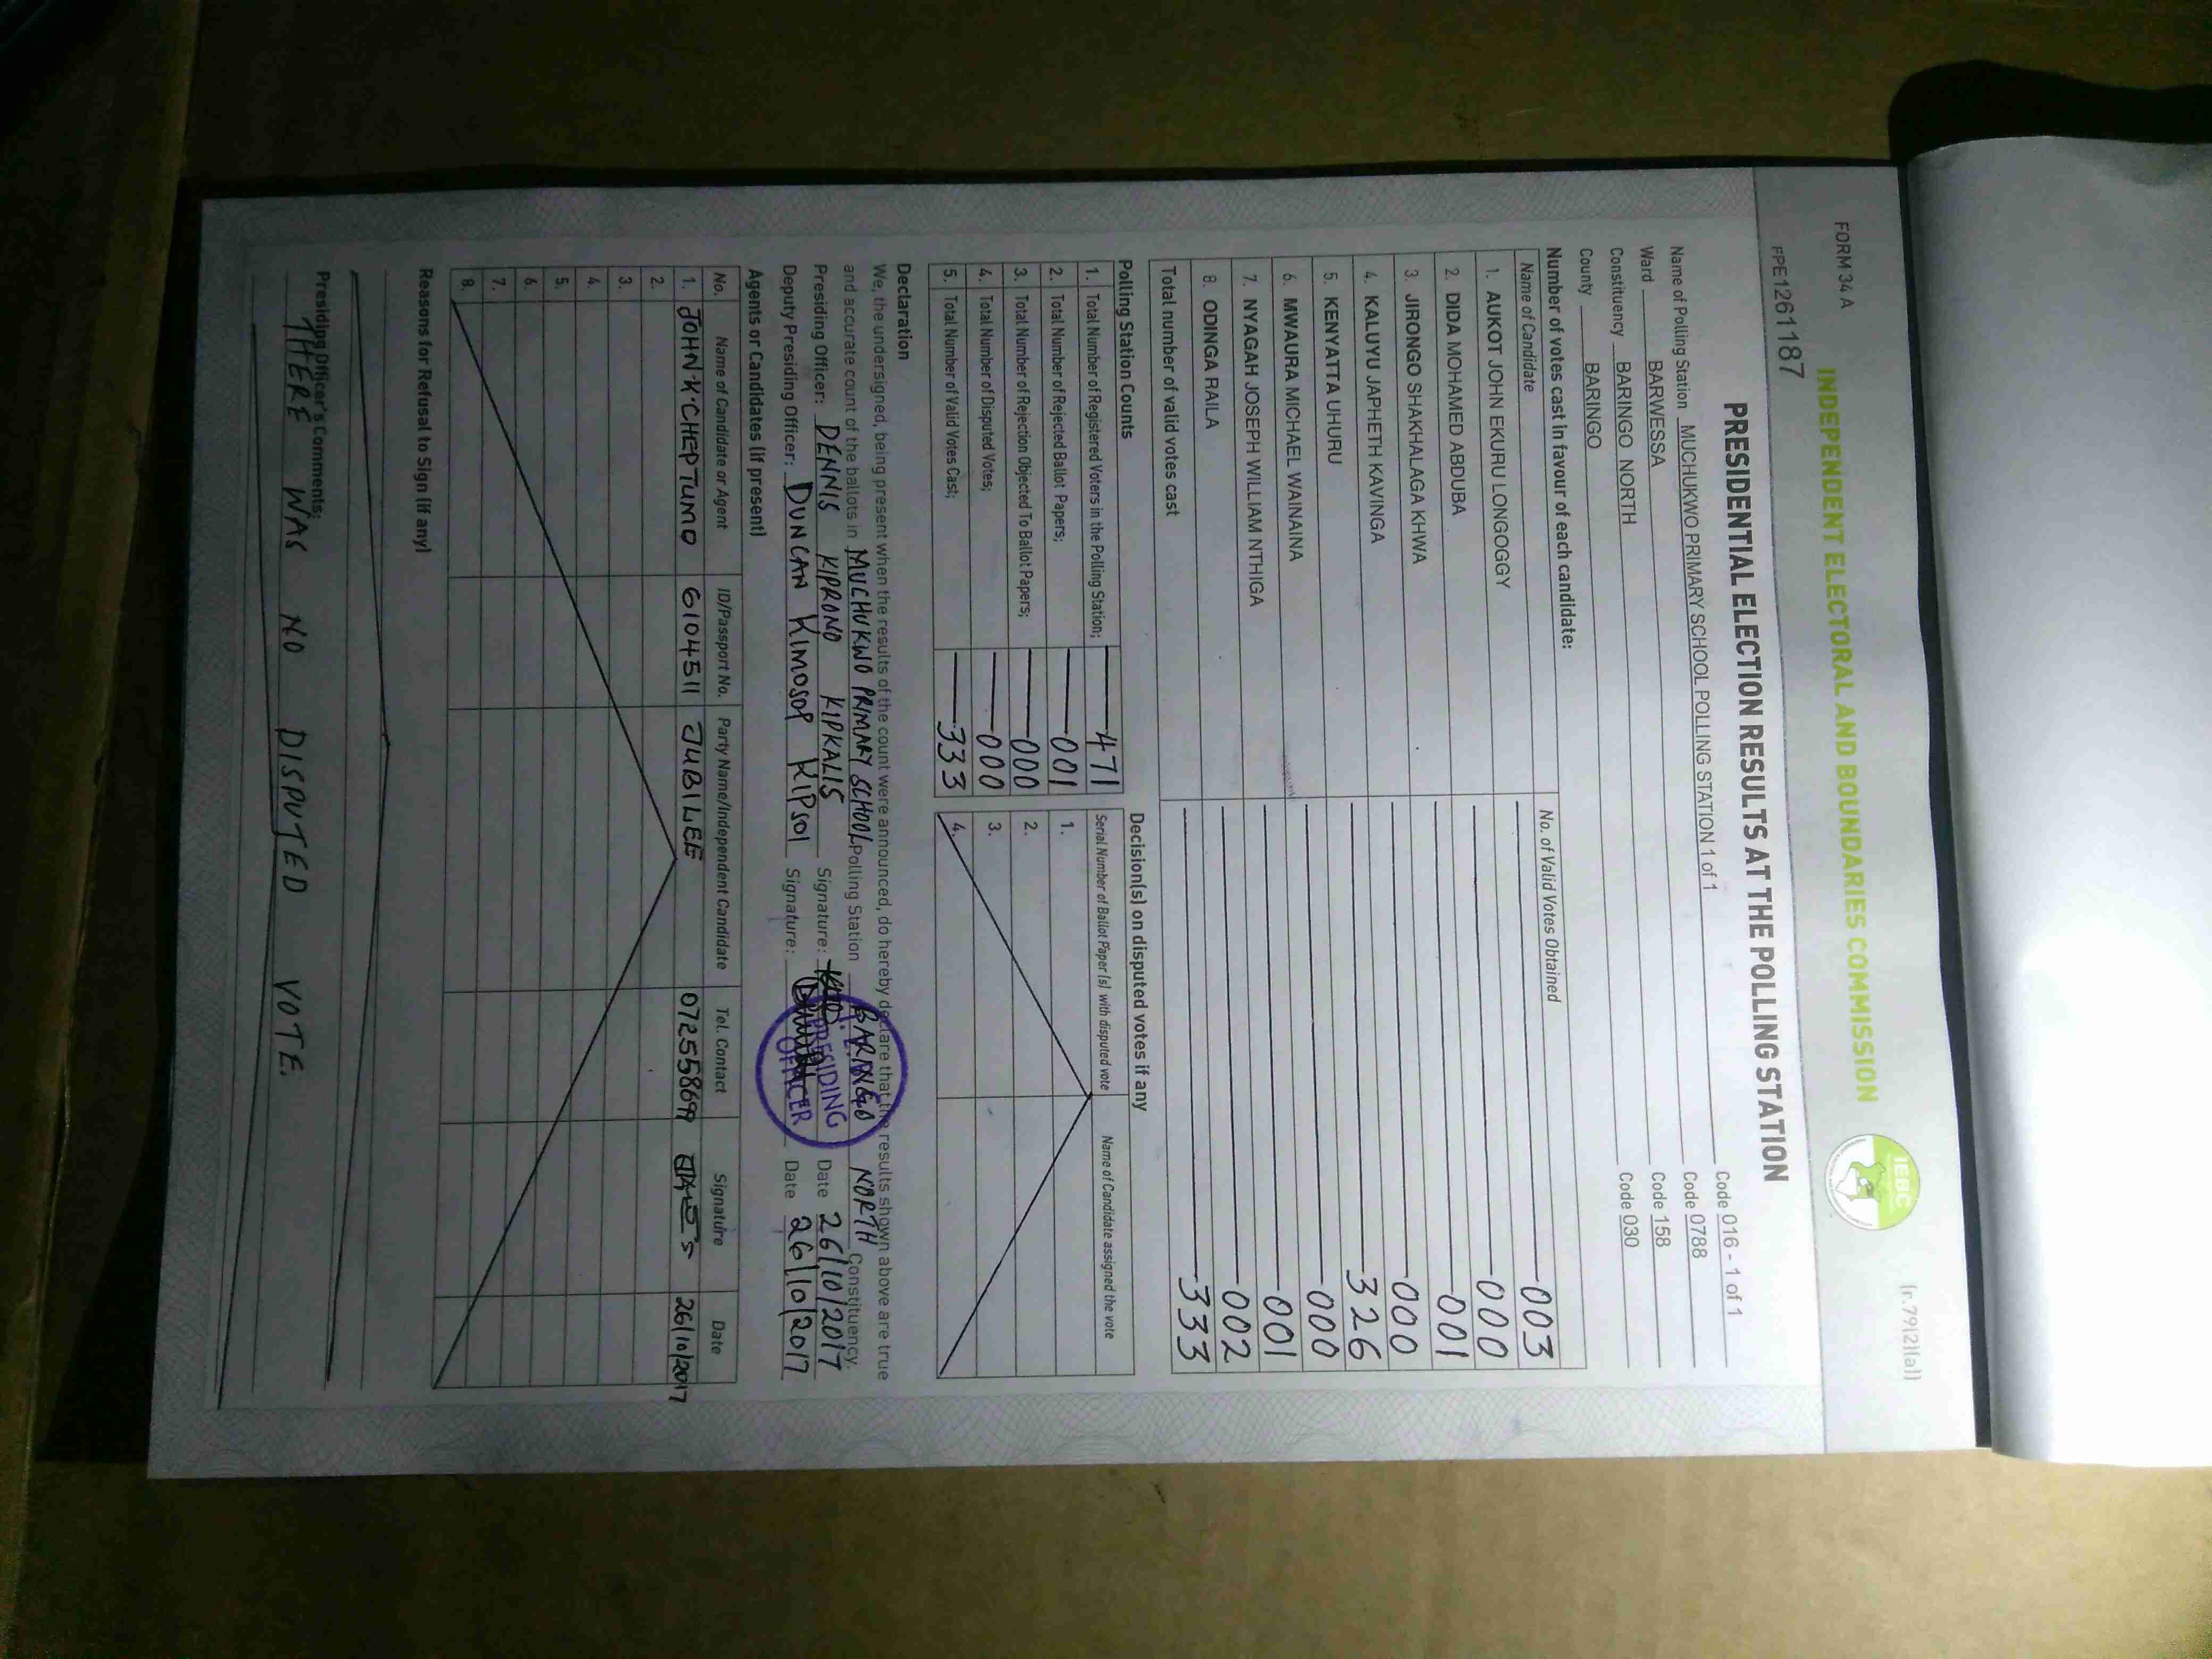 FORM 34 A
(r.79(2)(a))
INDEPENDENT ELECTORAL AND BOUNDARIES COMMISSION
IEBC
FPE1261187
PRESIDENTIAL ELECTION RESULTS AT THE POLLING STATION
Name of Polling Station MUCHUKWO PRIMARY SCHOOL POLLING STATION 1 of 1 Code 016 - 1 of 1
Ward BARWESSA Code 0788
Constituency BARINGO NORTH Code 158
County BARINGO Code 030
Number of votes cast in favour of each candidate:
Name of Candidate No. of Valid Votes Obtained
1. AUKOT JOHN EKURU LONGOGGY 003
2. DIDA MOHAMED ABDUBA 000
3. JIRONGO SHAKHALAGA KHWA 001
4. KALUYU JAPHETH KAVINGA 000
5. KENYATTA UHURU 326
6. MWAURA MICHAEL WAINAINA 000
7. NYAGAH JOSEPH WILLIAM NTHIGA 001
8. ODINGA RAILA 002
Total number of valid votes cast 333
Polling Station Counts
1. Total Number of Registered Voters in the Polling Station; 471
2. Total Number of Rejected Ballot Papers; 001
3. Total Number of Rejection Objected To Ballot Papers; 000
4. Total Number of Disputed Votes; 000
5. Total Number of Valid Votes Cast; 333
Decision(s) on disputed votes if any
Serial Number of Ballot Paper(s) with disputed vote Name of Candidate assigned the vote
1.
2.
3.
4.
Declaration
We, the undersigned, being present when the results of the count were announced, do hereby declare that the results shown above are true
and accurate count of the ballots in MUCHUKWO PRIMARY SCHOOL Polling Station BARINGO NORTH Constituency.
Presiding Officer: DENNIS KIPRONO KIPKALIS Signature: Date 26/10/2017
Deputy Presiding Officer: DUNCAN KIMOSOP KIPSOI Signature: Date 26/10/2017
PRESIDING
OFFICER
Agents or Candidates (if present)
No. Name of Candidate or Agent ID/Passport No. Party Name/Independent Candidate Tel. Contact Signature Date
1. JOHN·K·CHEPTUMO 6104511 JUBILEE 0725558699 26/10/2017
2.
3.
4.
5.
6.
7.
8.
Reasons for Refusal to Sign (if any)
Presiding Officer's Comments:
THERE WAS NO DISPUTED VOTE.